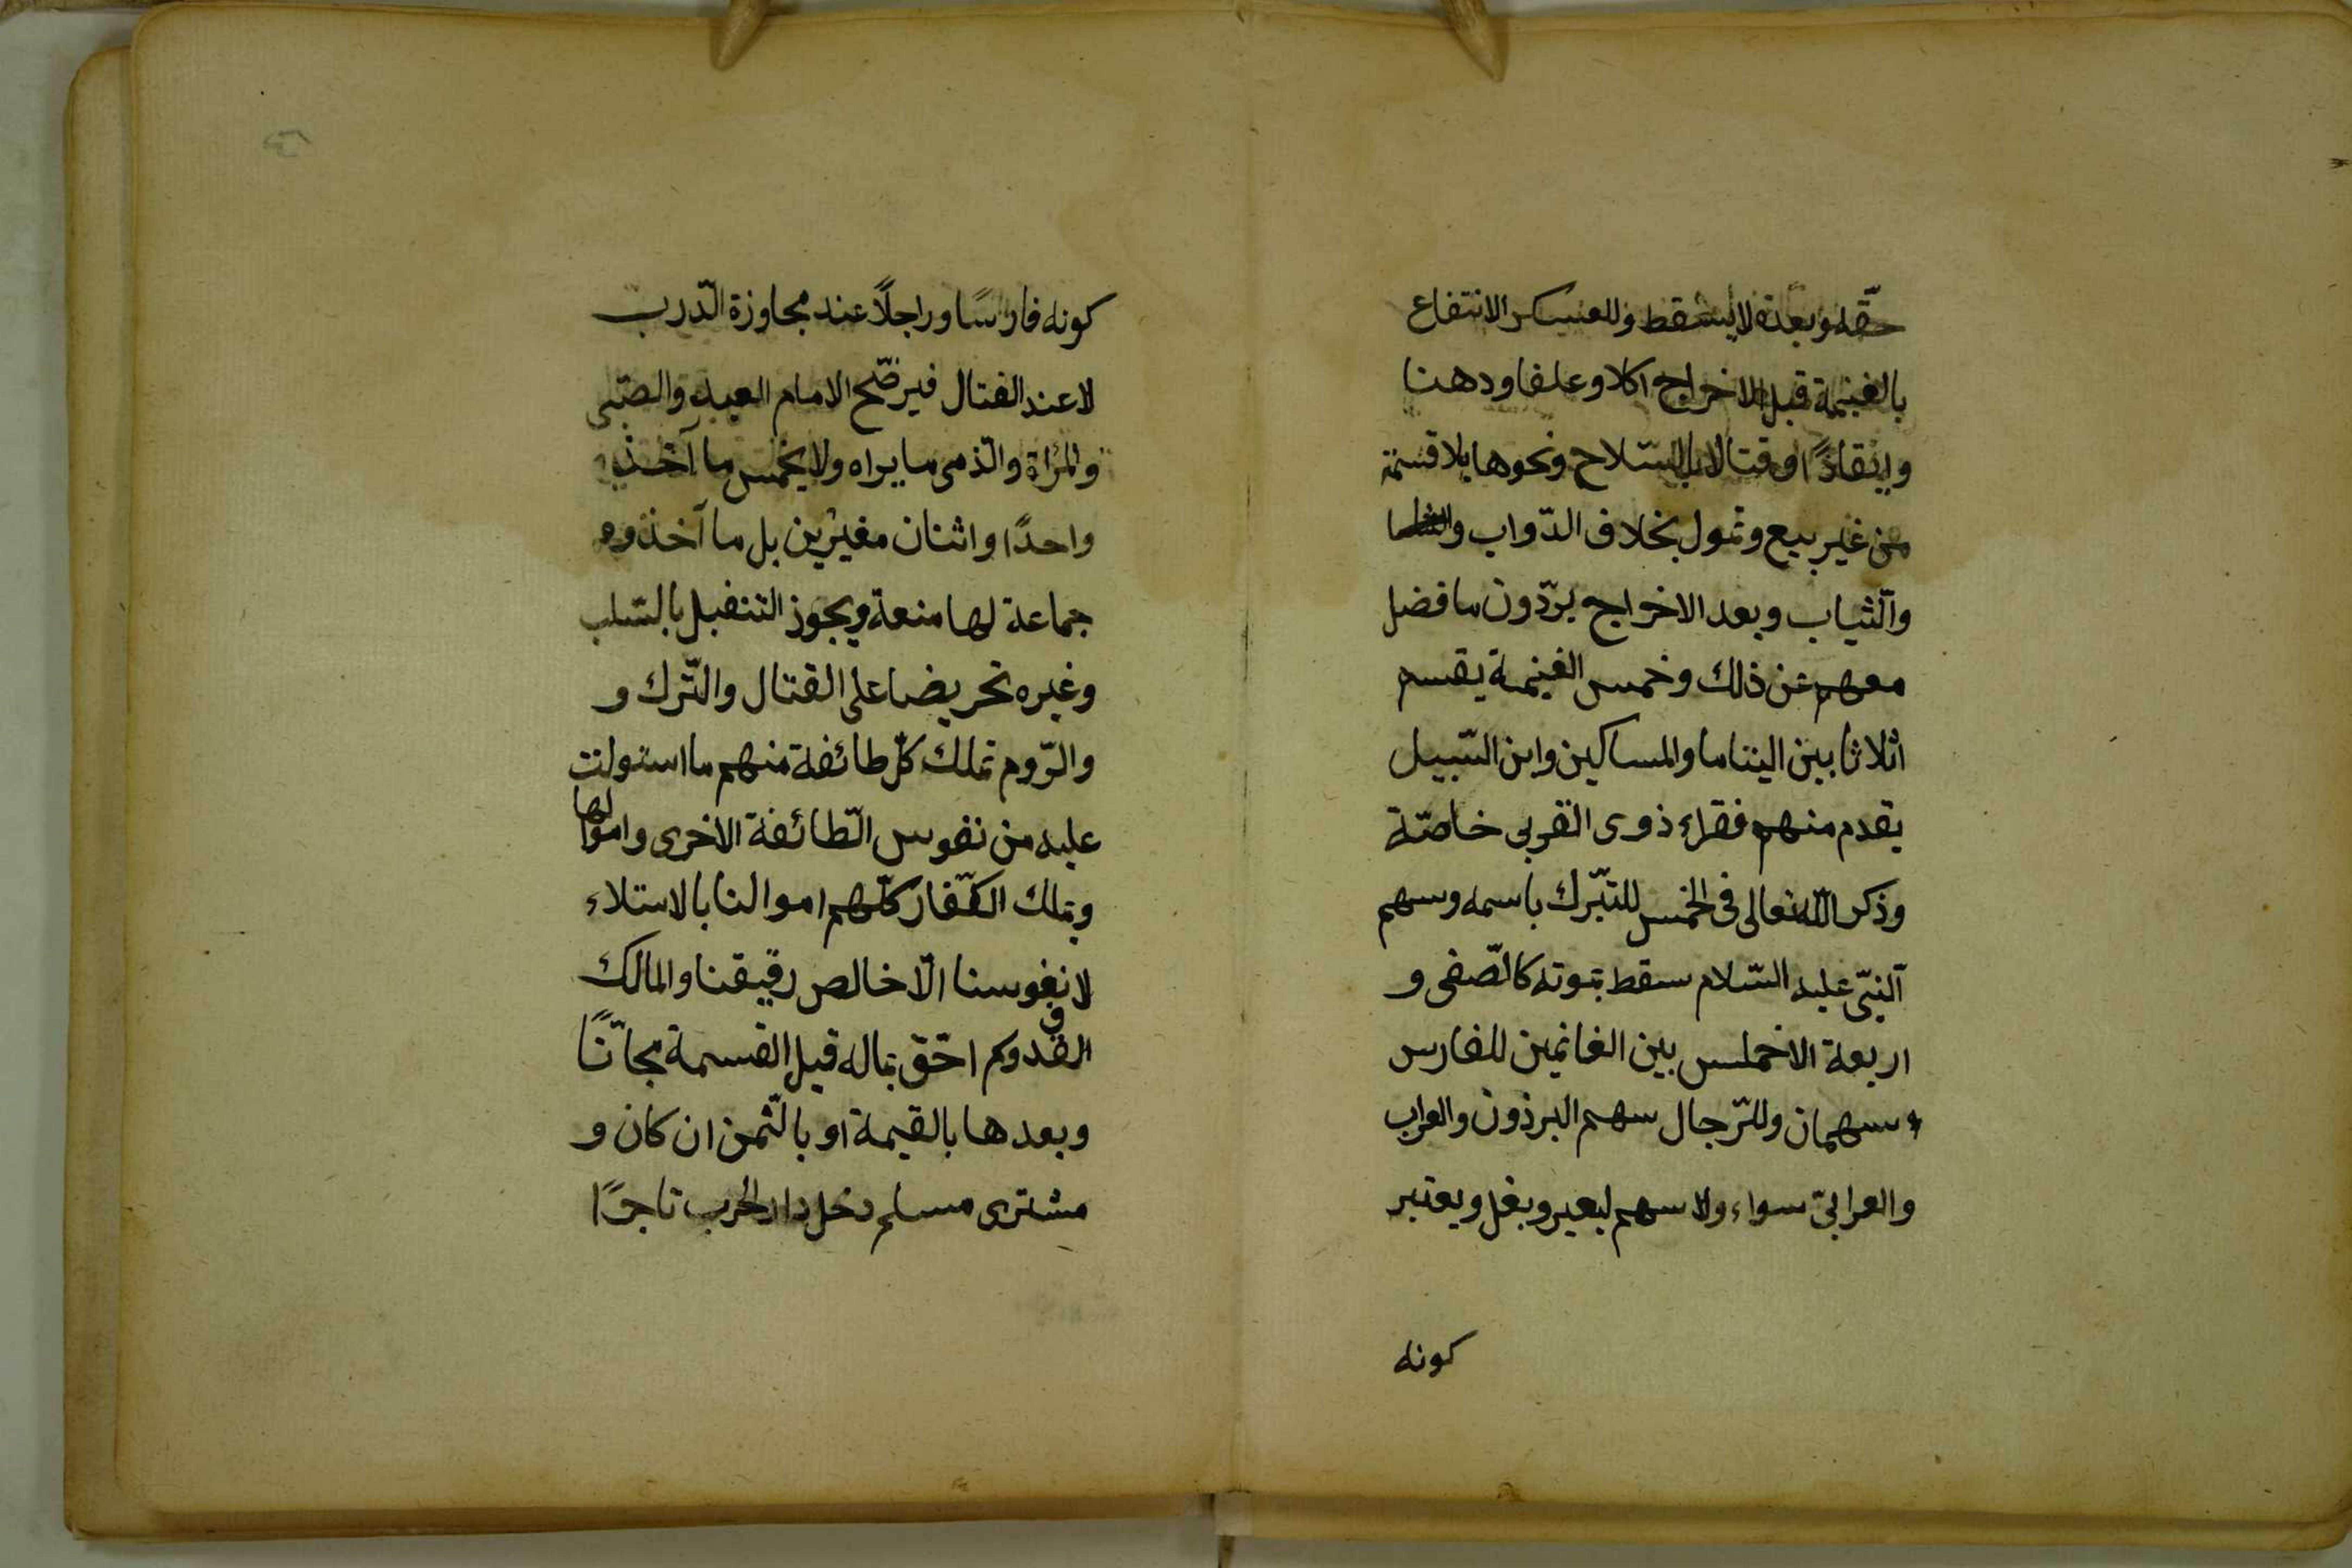 حقّه وبعده لا يسقط وللعسكر الانتفاع
بالغنيمة قبل الاخراج اكلا وعلفا ودهنا
وايقادًا وقتالا بالسّلاح ونحوها بلا قسمة
من غير بيع وتمول بخلاف الدّواب
والثياب وبعد الاخراج يردّون ما فضل
معهم عن ذلك وخمس الغنيمة يقسم
اثلاثا بين اليتاما والمساكين وابن السّبيل
يقدم منهم فقراء ذوى القربى خاصّة
وذكر اللّه تعالى فى الخمس للتبّرك باسمه وسهم
النبّى عليه السّلام سقط بموته كالصّفى و
اربعة الاخماس بين الغانمين للفارس
سهمان وللرّجال سهم البرذون والعراب
والعرابىّ سواء ولا سهم لبعير وبغل ويعتبر
كونه
كونه فارسًا وراجلًا عند مجاوزة الدّرب
لا عند القتال فيرضّح الامام العبد والصّبى
والمراة والذمى ما يراه ولا يخمس ما اخذ
واحدًا واثنان مغيرين بل ما آخذوه
جماعة لها منعة ويجوز التنفيل بالسّلب
وغيره تحريضا على القتال والتّرك و
والرّوم تملك كلّ طائفة منهم ما استولت
عليه من نفوس الطّائفة الاخرى واموالها
وتملك الكفّار كلّهم اموالنا بالاستلاء
لا نفوسنا الّا خالص رقيقنا والمالك
القدوكم احّق بماله قبل القسمة مجاّنًا
وبعدها بالقيمة او بالثّمن ان كان و
مشترى مسلم دخل دار الحرب تاجرًا